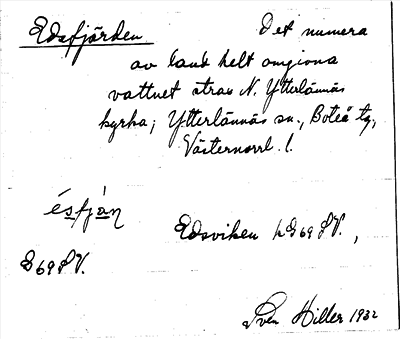 Edsfjärden Det numera
av land helt omgivna
vattnet strax N. Ytterlännäs
kyrka; Ytterlännäs sn., Boteå tg,
Västernorrl. l.
ésfján
Edsviken på G 69 SV.,
G 69 SV.
Sven Hiller 1932